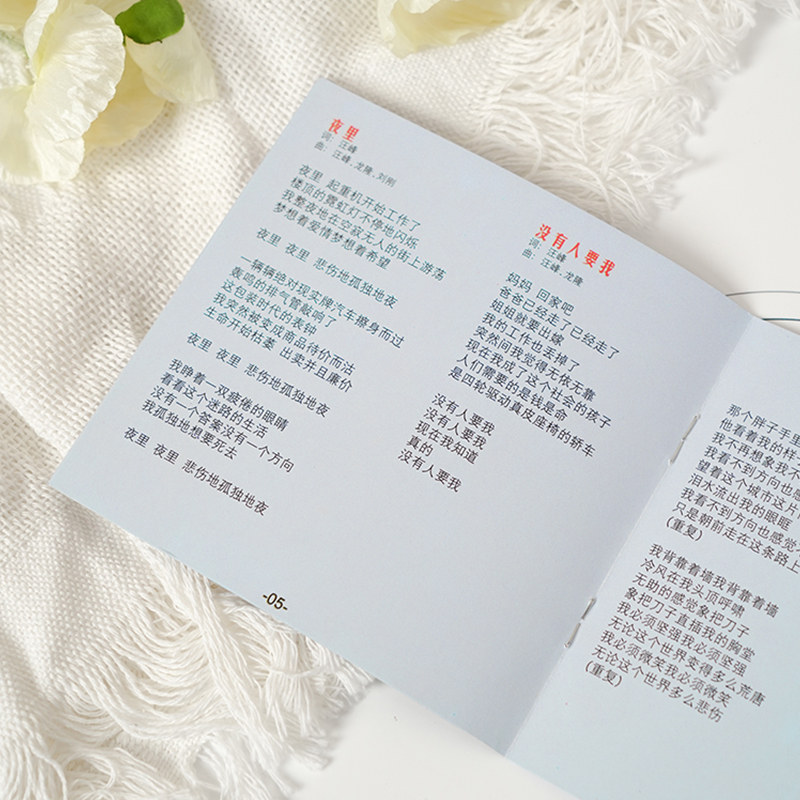 夜里
词: 汪峰
曲: 汪峰、龙隆、刘刚
夜里 起重机开始工作了
楼顶的霓虹灯不停地闪烁
我整夜地在空寂无人的街上游荡
梦想着爱情梦想着希望
夜里 夜里 悲伤地孤独地夜
一辆辆绝对现实牌汽车擦身而过
轰鸣的排气管敲响了
这包装时代的表钟
我突然被变成商品待价而沽
生命开始枯萎 出卖并且廉价
夜里 夜里 悲伤地孤独地夜
我睁着一双疲倦的眼睛
看看这个迷路的生活
没有一个答案没有一个方向
我孤独地想要死去
夜里 夜里 悲伤地孤独地夜
-05-
没有人要我
词: 汪峰
曲: 汪峰、龙隆
妈妈 回家吧
爸爸已经走了已经走了
姐姐就要出嫁
我的工作也丢掉了
突然间我觉得无依无靠
现在我成了这个社会的孩子
人们需要的是钱是命
是四轮驱动真皮座椅的轿车
没有人要我
没有人要我
现在我知道
真的
没有人要我
那个胖子手里
他看着我的样
我不再想象我不
我看不到方向也感
望着这个城市这片
泪水流出我的眼眶
我看不到方向也感觉
只是朝前走在这条路上
(重复)
我背靠着墙我背靠着墙
冷风在我头顶呼啸
无助的感觉象把刀子
象把刀子直插我的胸堂
我必须坚强我必须坚强
无论这个世界变得多么荒唐
我必须微笑我必须微笑
无论这个世界多么悲伤
(重复)